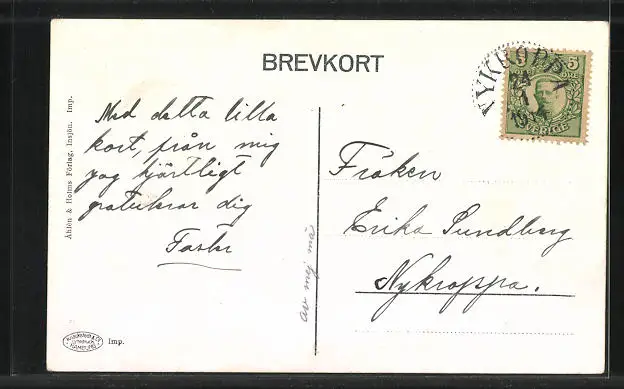 BREVKORT
Med detta lilla
kort, från mig
jag hjärtligt
gratulerar dig
Faster
av mej må
Fröken
Erika Sundberg
Nykroppa.
NYKROPPA
5 5
ÖRE
SVERIGE
Åhlén & Holms Förlag, Insjön. Imp.
Imp.